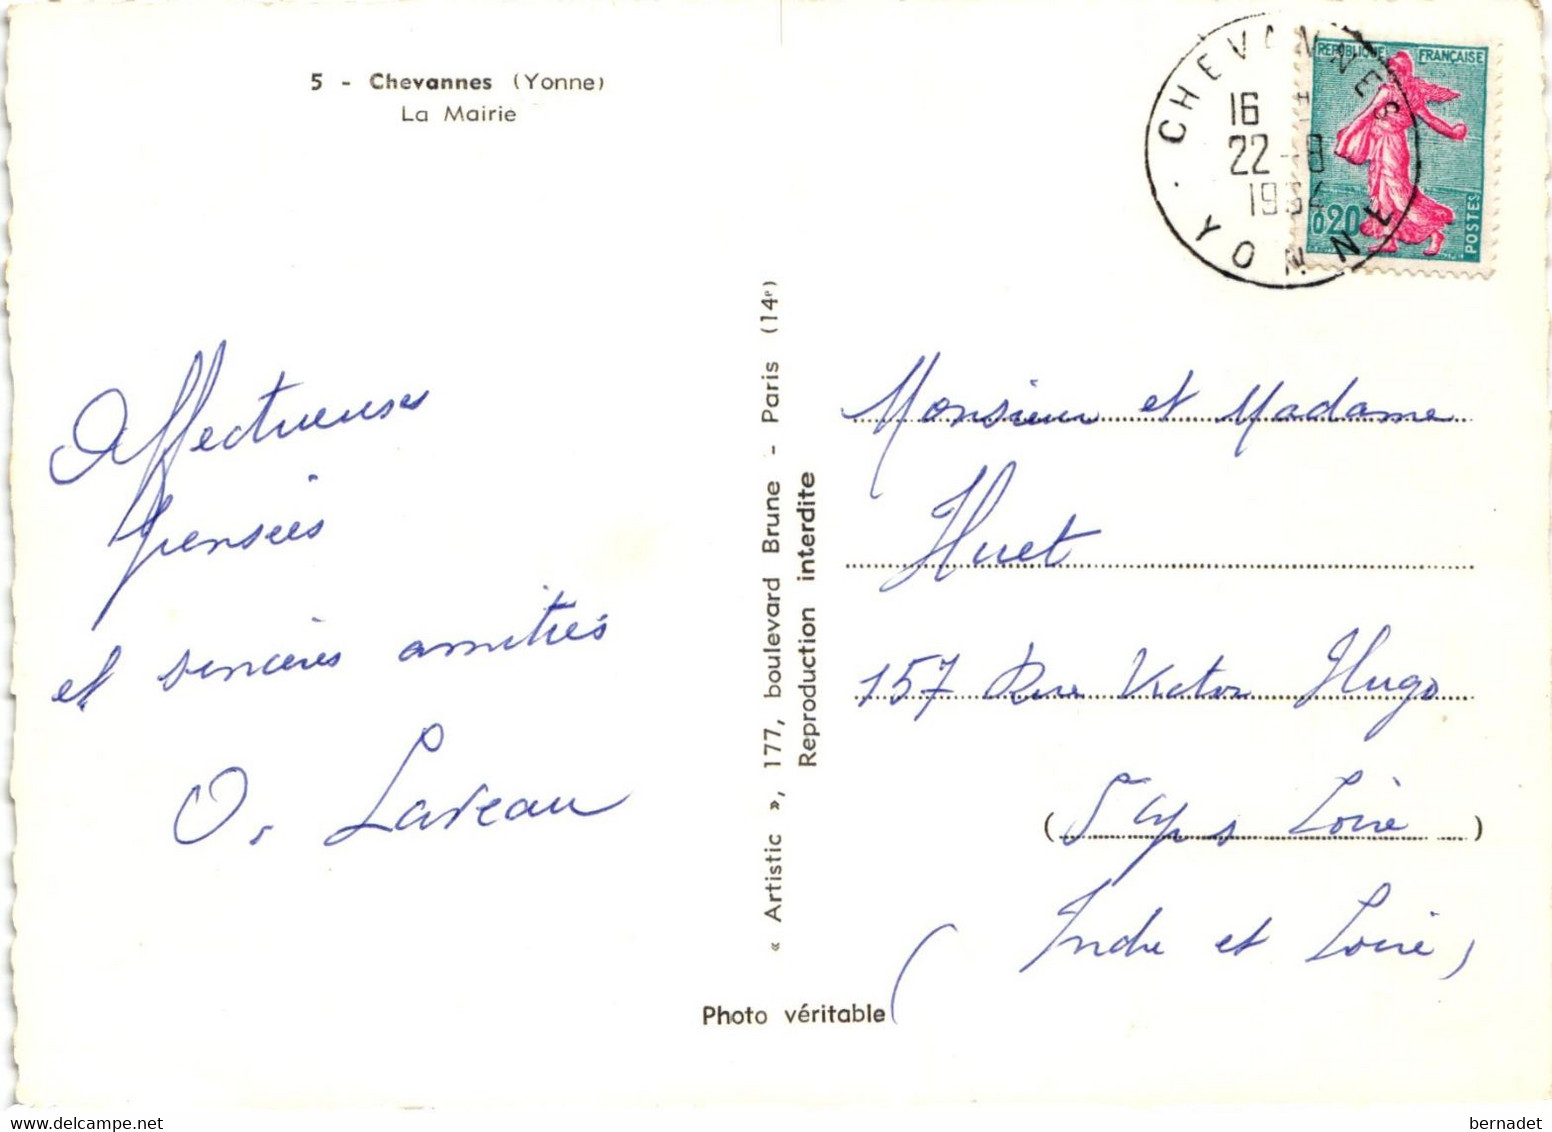 5 - Chevannes (Yonne)
La Mairie
CHEVANNES
16 H
22-8
1964
· YONNE
REPUBLIQUE FRANÇAISE
0,20
POSTES
Affectueuses
pensées
et sincères amitiés
O. Laveau
« Artistic », 177, boulevard Brune - Paris (14e)
Reproduction interdite
Monsieur et Madame
Huet
157 Rue Victor Hugo
( Loire )
(Indre et Loire)
Photo véritable
bernadet